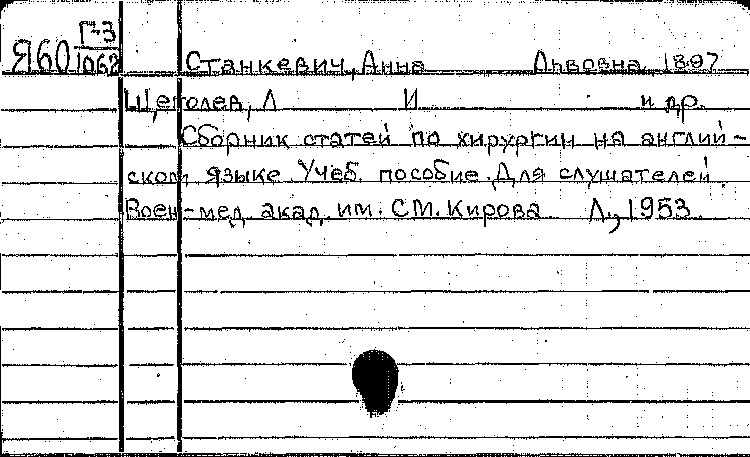 Я60 Г-3/1062
Станкевич, Анна Львовна, 1897
Щеголев, Л И и др.
Сборник статей по хирургии на англий-
ском языке. Учеб. пособие. Для слушателей
Воен-мед. акад. им. С.М. Кирова Л., 1953